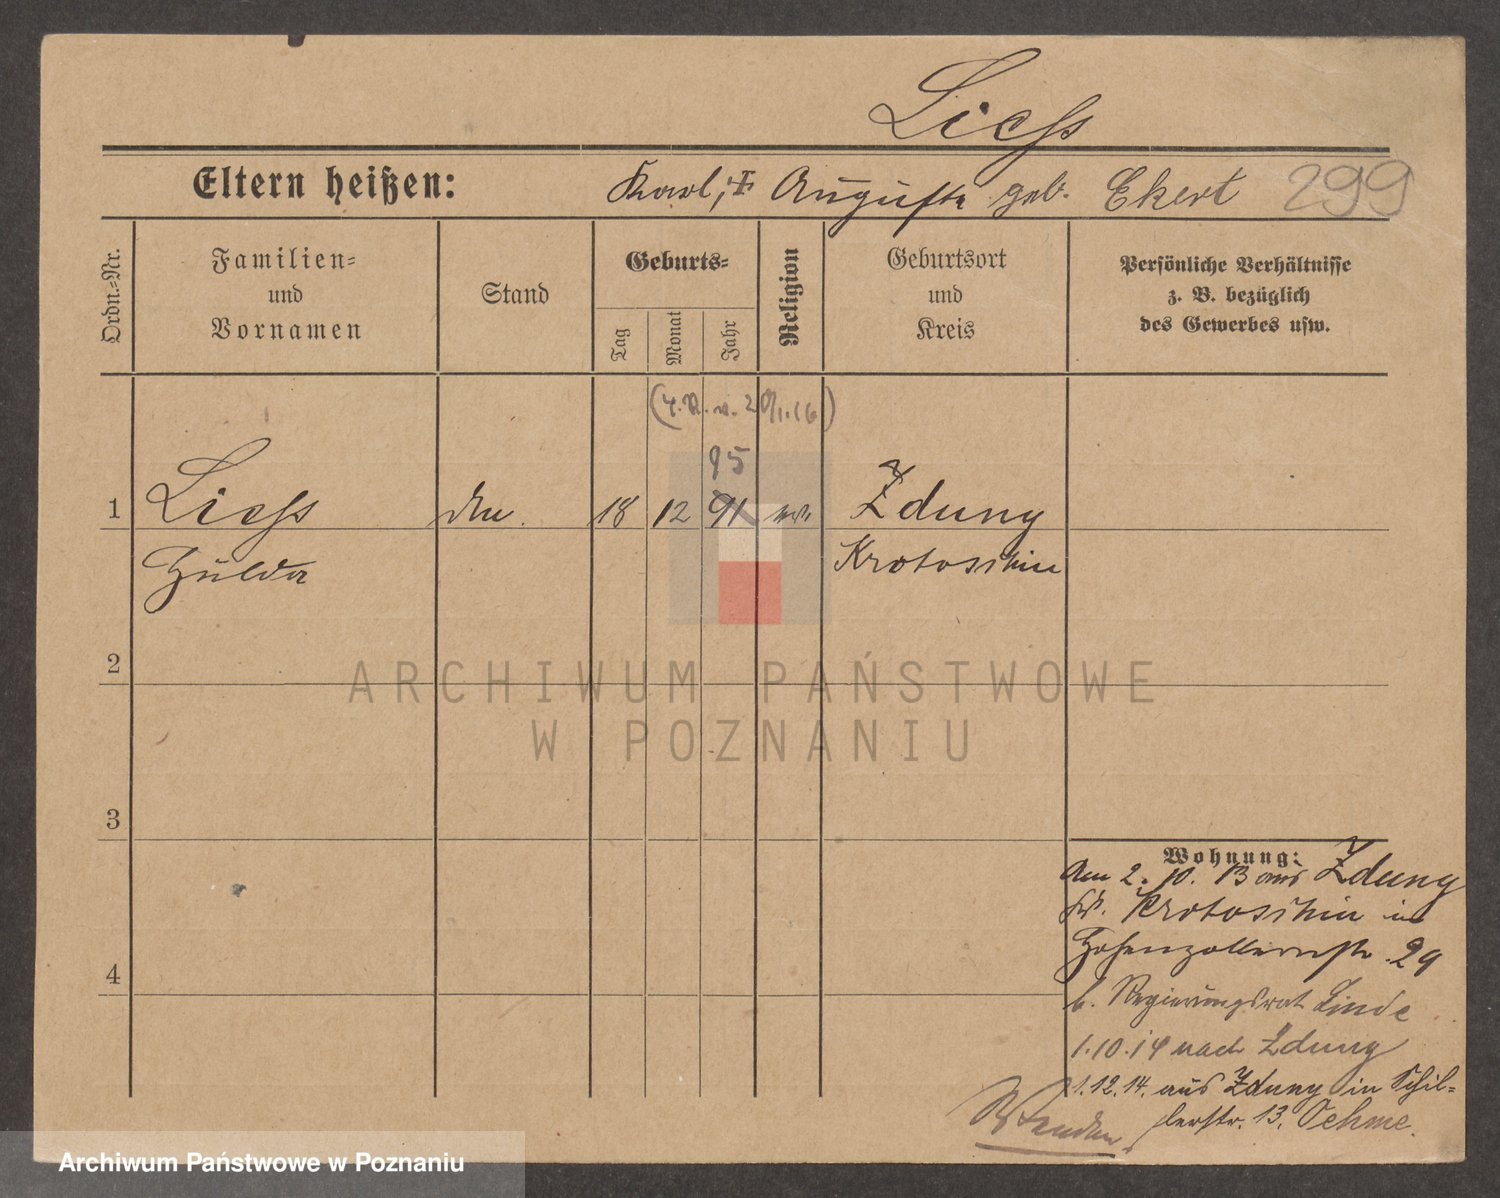 Liehs
Eltern heißen: Karl, ✝ Auguste geb. Ekert 299
Ordn.-Nr.
Familien-
und
Vornamen
Stand
Geburts-
Tag
Monat
Jahr
Religion
Geburtsort
und
Kreis
Persönliche Verhältnisse
z. B. bezüglich
des Gewerbes usw.
95
1 Liehs 18 12 91 ev. Zduny
Hulda Krotoschin
2
ARCHIWUM PAŃSTWOWE
W POZNANIU
3
4
Wohnung:
Am 2. 10. 13 aus Zduny
Kr. Krotoschin in
Hohenzollernstr. 29
b. Regierungsrat Linde
1.10.14 nach Zduny
1.12.14. aus Zduny in Schil-
lerstr. 13. Oehme.
Wenden
Archiwum Państwowe w Poznaniu